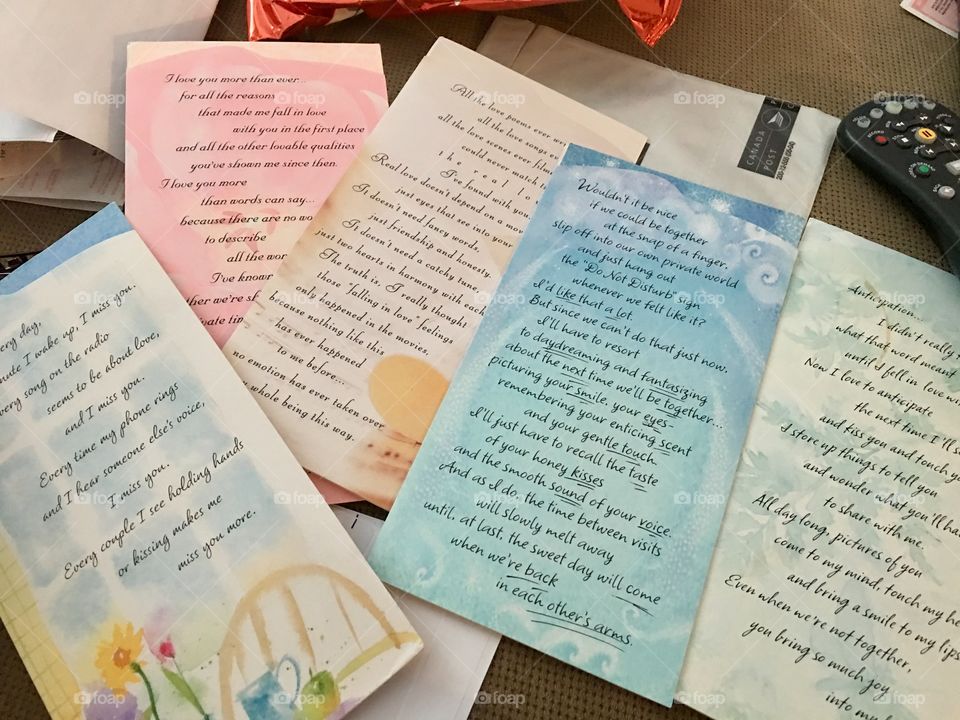 I love you more than ever...
for all the reasons
that made me fall in love
with you in the first place
and all the other lovable qualities
you've shown me since then.
I love you more
than words can say...
because there are no wo
to describe
all the wor
I've known
ther we're sh
ivate time
All the love poems ever
all the love songs ev
all the love scenes ever film
could never match t
the real lo
I've found with you.
Real love doesn't depend on a mo
just eyes that see into your
It doesn't need fancy words,
just friendship and honesty.
It doesn't need a catchy tune,
just two hearts in harmony with each
The truth is, I really thought
those "falling in love" feelings
only happened in the movies,
because nothing like this
has ever happened
to me before...
no emotion has ever taken over
y whole being this way.
CANADA
POST
Wouldn't it be nice
if we could be together
at the snap of a finger,
slip off into our own private world
and just hang out
the "Do Not Disturb" sign
whenever we felt like it?
I'd like that a lot.
But since we can't do that just now,
I'll have to resort
to daydreaming and fantasizing
about the next time we'll be together...
picturing your smile, your eyes
remembering your enticing scent
and your gentle touch.
I'll just have to recall the taste
of your honey kisses
and the smooth sound of your voice.
And as I do, the time between visits
will slowly melt away
until, at last, the sweet day will come
when we're back
in each other's arms.
Anticipation...
I didn't really
what that word meant
until I fell in love wi
Now I love to anticipate
the next time I'll s
and kiss you and touch yo
I store up things to tell you
and wonder what you'll ha
to share with me.
All day long, pictures of you
come to my mind, touch my he
and bring a smile to my lips
Even when we're not together,
you bring so much joy
into my
ery day,
nute I wake up, I miss you.
very song on the radio
seems to be about love,
and I miss you.
Every time my phone rings
and I hear someone else's voice,
I miss you.
Every couple I see holding hands
or kissing makes me
miss you more.